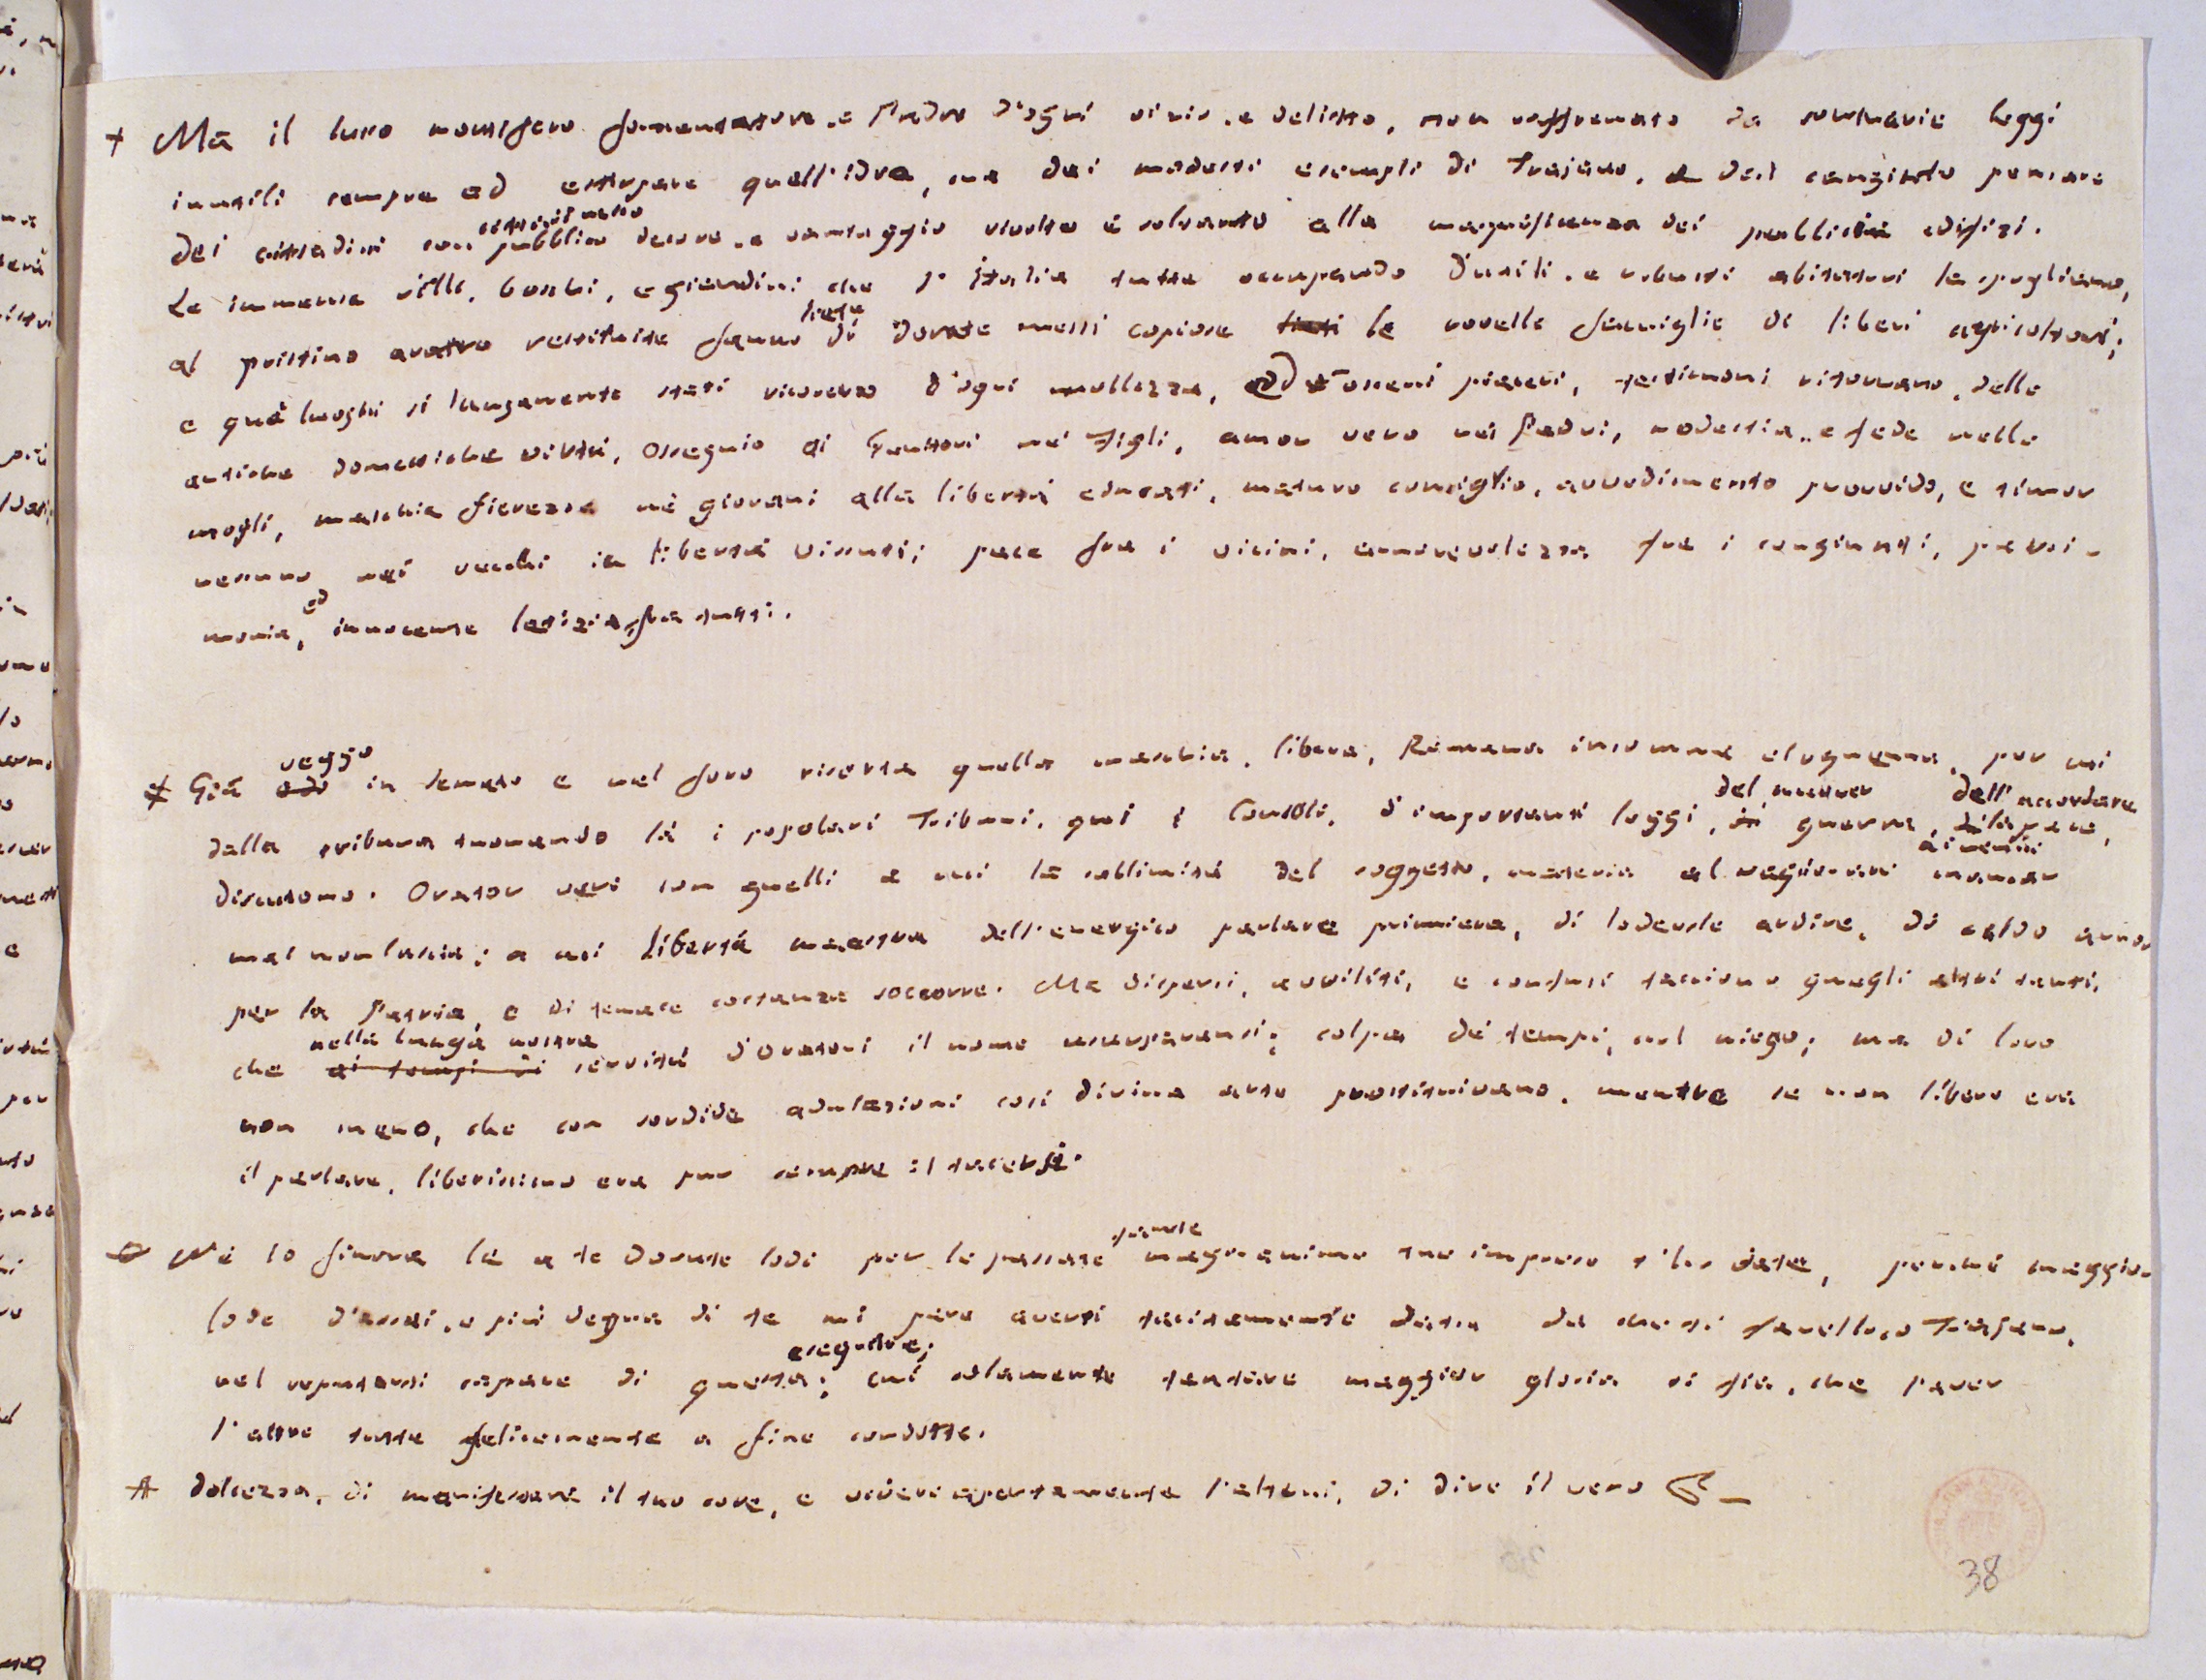 + Ma il lusso mortifero fomentatore, e Padre d'ogni vizio, e delitto, non raffrenato da sontuarie leggi
inutili sempre ad estirpare quell'idra, ma dai modesti esempli di Trajano, e dal cangiato pensare
dei cittadini con pubblico decoro, e vantaggio rivolto è soltanto alla magnificenza dei pubblici edifizi.
Le immense ville, boschi, e giardini che l'Italia tutta occupando d'utili, e robusti abitatori la spogliano,
liete
al pristino aratro restituite fanno di dorate messi copiose lieti le novelle famiglie di liberi agricoltori;
e que' luoghi sì lungamente stati ricovero d'ogni mollezza, ed osceni piaceri, testimoni ritornano, delle
antiche domestiche virtù, ossequio ai Genitori ne' Figli, amor vero nei Padri, modestia, e fede nelle
mogli, maschia fierezza ne' giovani alla libertà educati, maturo consiglio, avvedimento provvido, e timor
nessuno nei vecchi in libertà vissuti; pace fra i vicini, amorevolezza fra i congiunti, parsi-
ed
monia, innocente letizia fra tutti.
veggo
+ Già odo in senato e nel foro risorta quella maschia, libera, Romana insomma eloquenza, per cui
del muover dell'accordare
dalla tribuna tuonando là i popolari Tribuni, quì i Consoli, d'importanti leggi, di guerra, di pace,
ai
discutono. Orator veri son quelli a cui la sublimità del soggetto, materia al ragionar mancar
mai non lascia; a cui Libertà maestra dell'energico parlare primiera, di lodevole ardire, di caldo amor
per la Patria, e di tenace costanza soccorre. Ma dispersi, avviliti, e confusi tacciono quegli altri tanti,
nella lunga nostra
che ai tempi di servitù d'Oratori il nome usurpavansi; colpa dei tempi, nol niego; ma di loro
non meno, che con sordide adulazioni così divina arte prostituivano, mentre se non libero era
il parlare, liberissimo era pur sempre il tacersi.
tante
Nè io finora le a te dovute lodi per le passate magnanime tue imprese ti ho date, perchè maggior
lode d'assai, e più degna di te mi pare averti tacitamente data da che ti favello, o Trajano,
eseguire;
nel reputarti capace di questa; cui solamente tentare maggior gloria ti fia, che l'aver
l'altre tutte felicemente a fine condotte.
dolcezza, di manifestare il tuo core, e vedere apertamente l'altrui, di dire il vero &c –
38